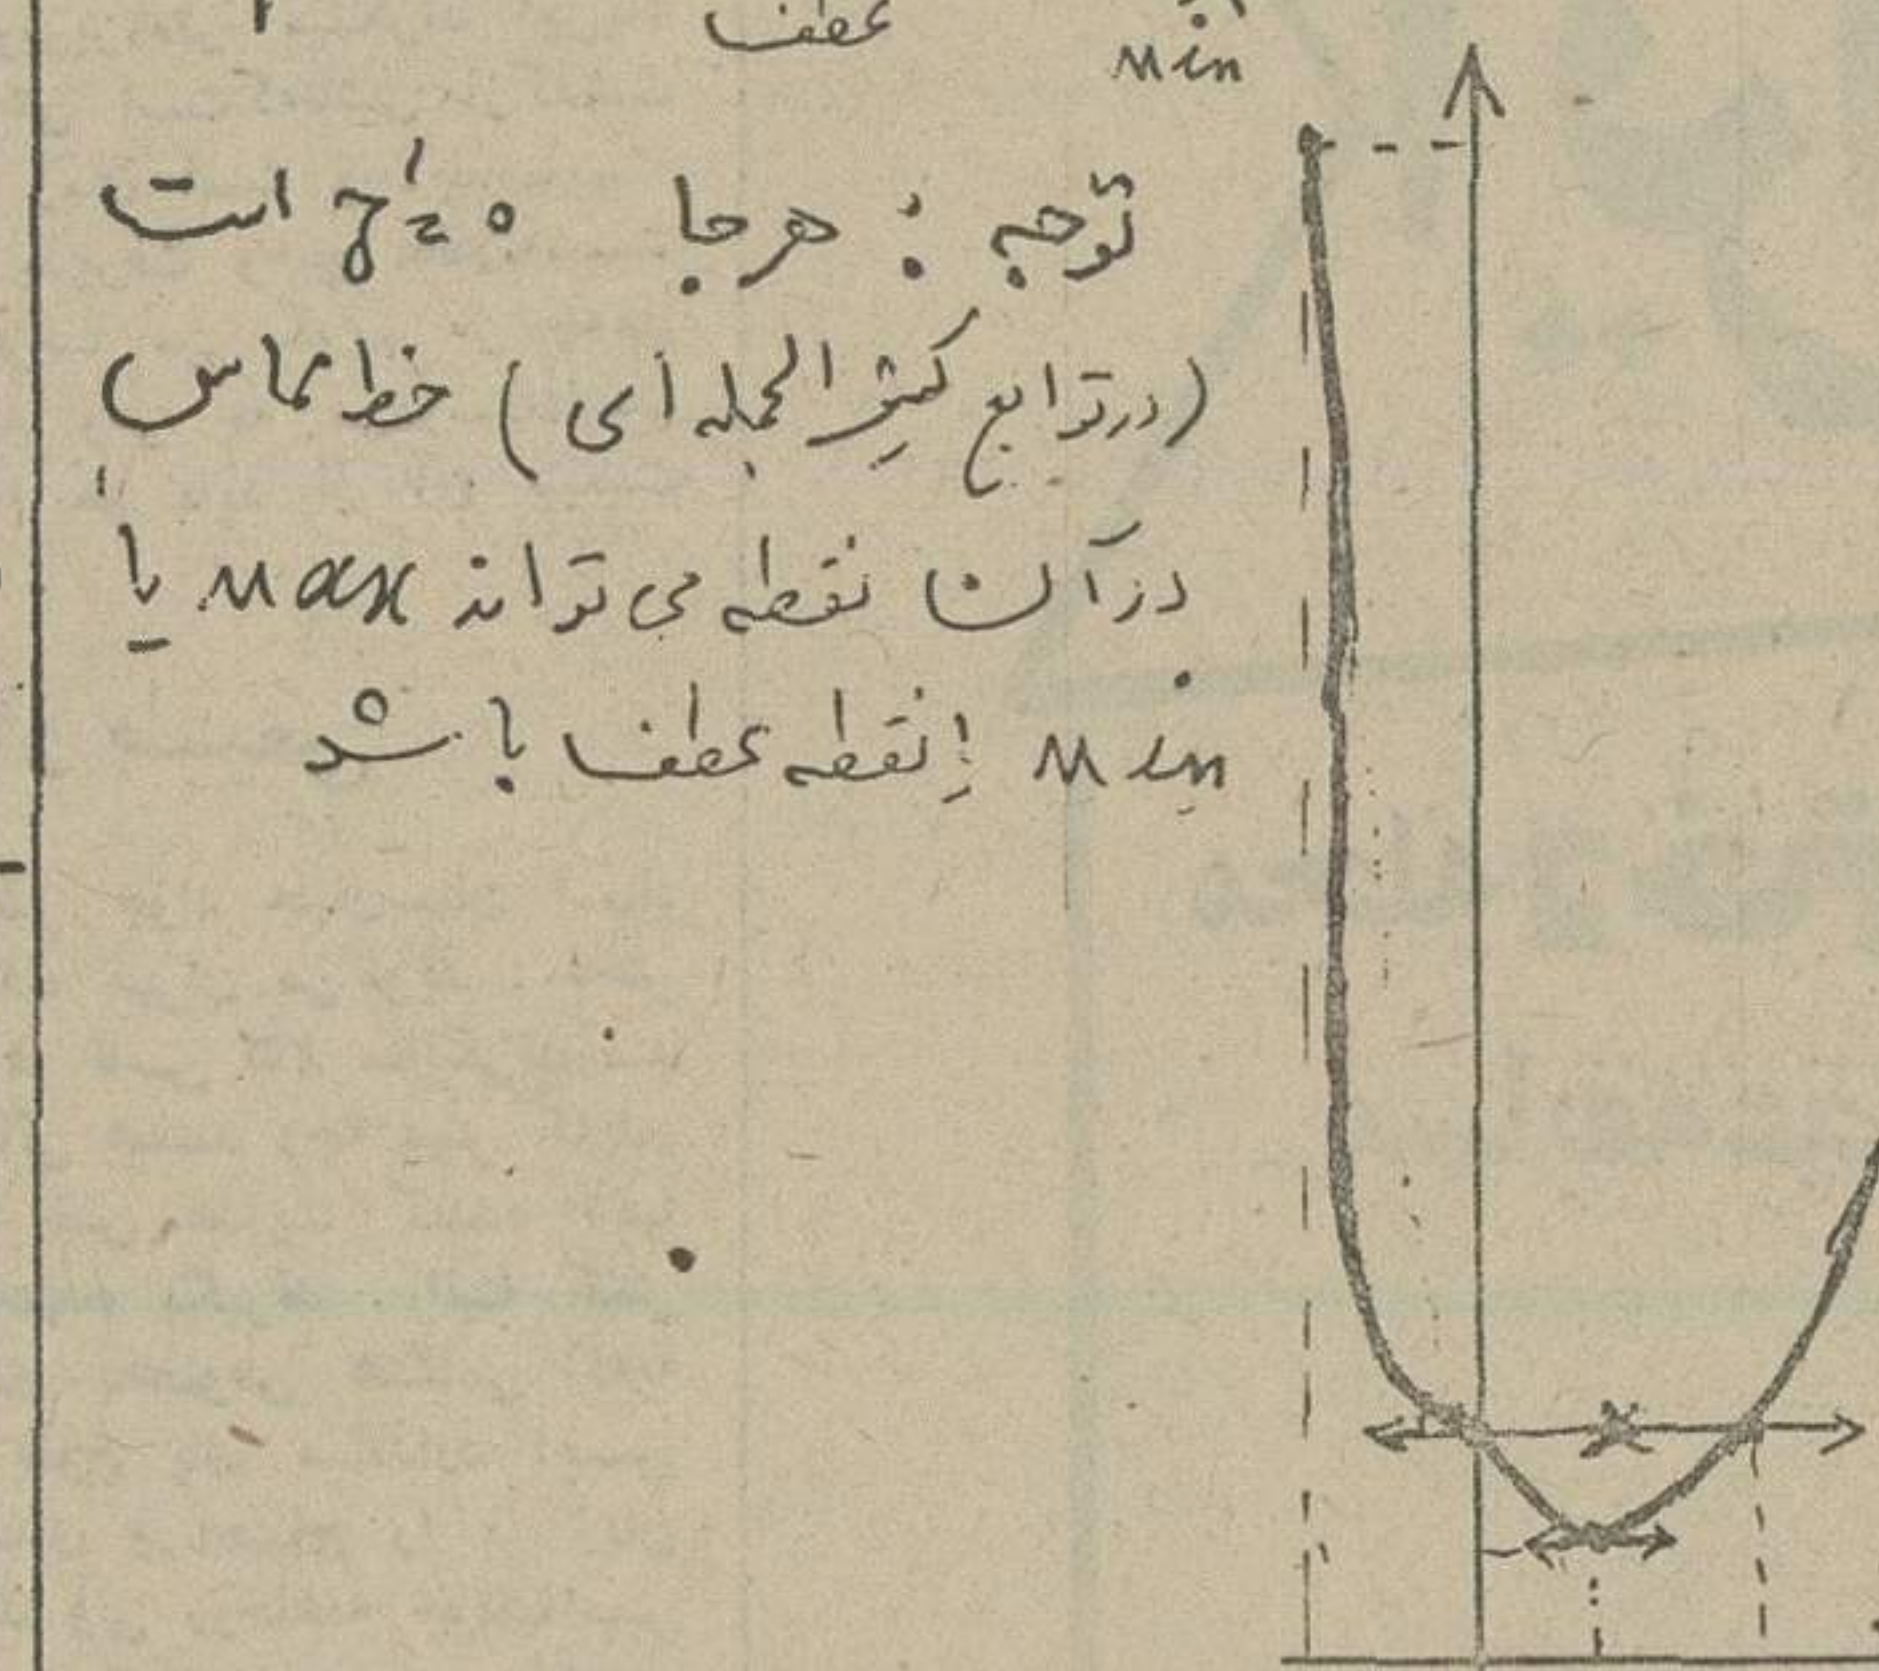 Min عطف
توجه : هرجا y'=0 است
(در توابع کثیر الجمله ای) خط مماس
در آن نقطه می تواند Max یا
Min یا نقطه عطف باشد